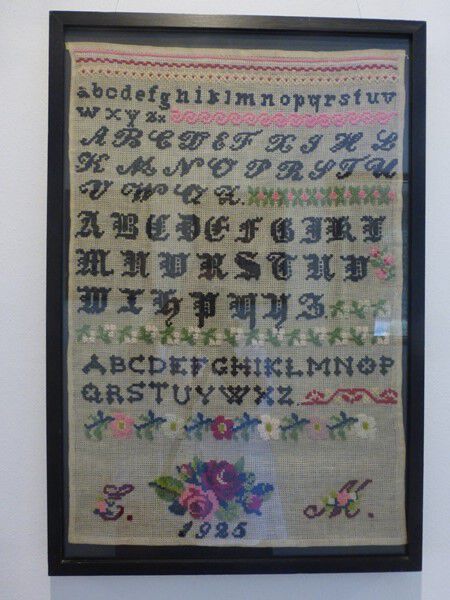 abcdefghiklmnopqrstuv
wxyz
A B C D E F I H L
K M N O P R S T U
V W O
A B C D E F G I K L
M N O R S T U V
W I H P Y Y Z
ABCDEFGHIKLMNOP
QRSTUVWXZ
E. 1925 M.